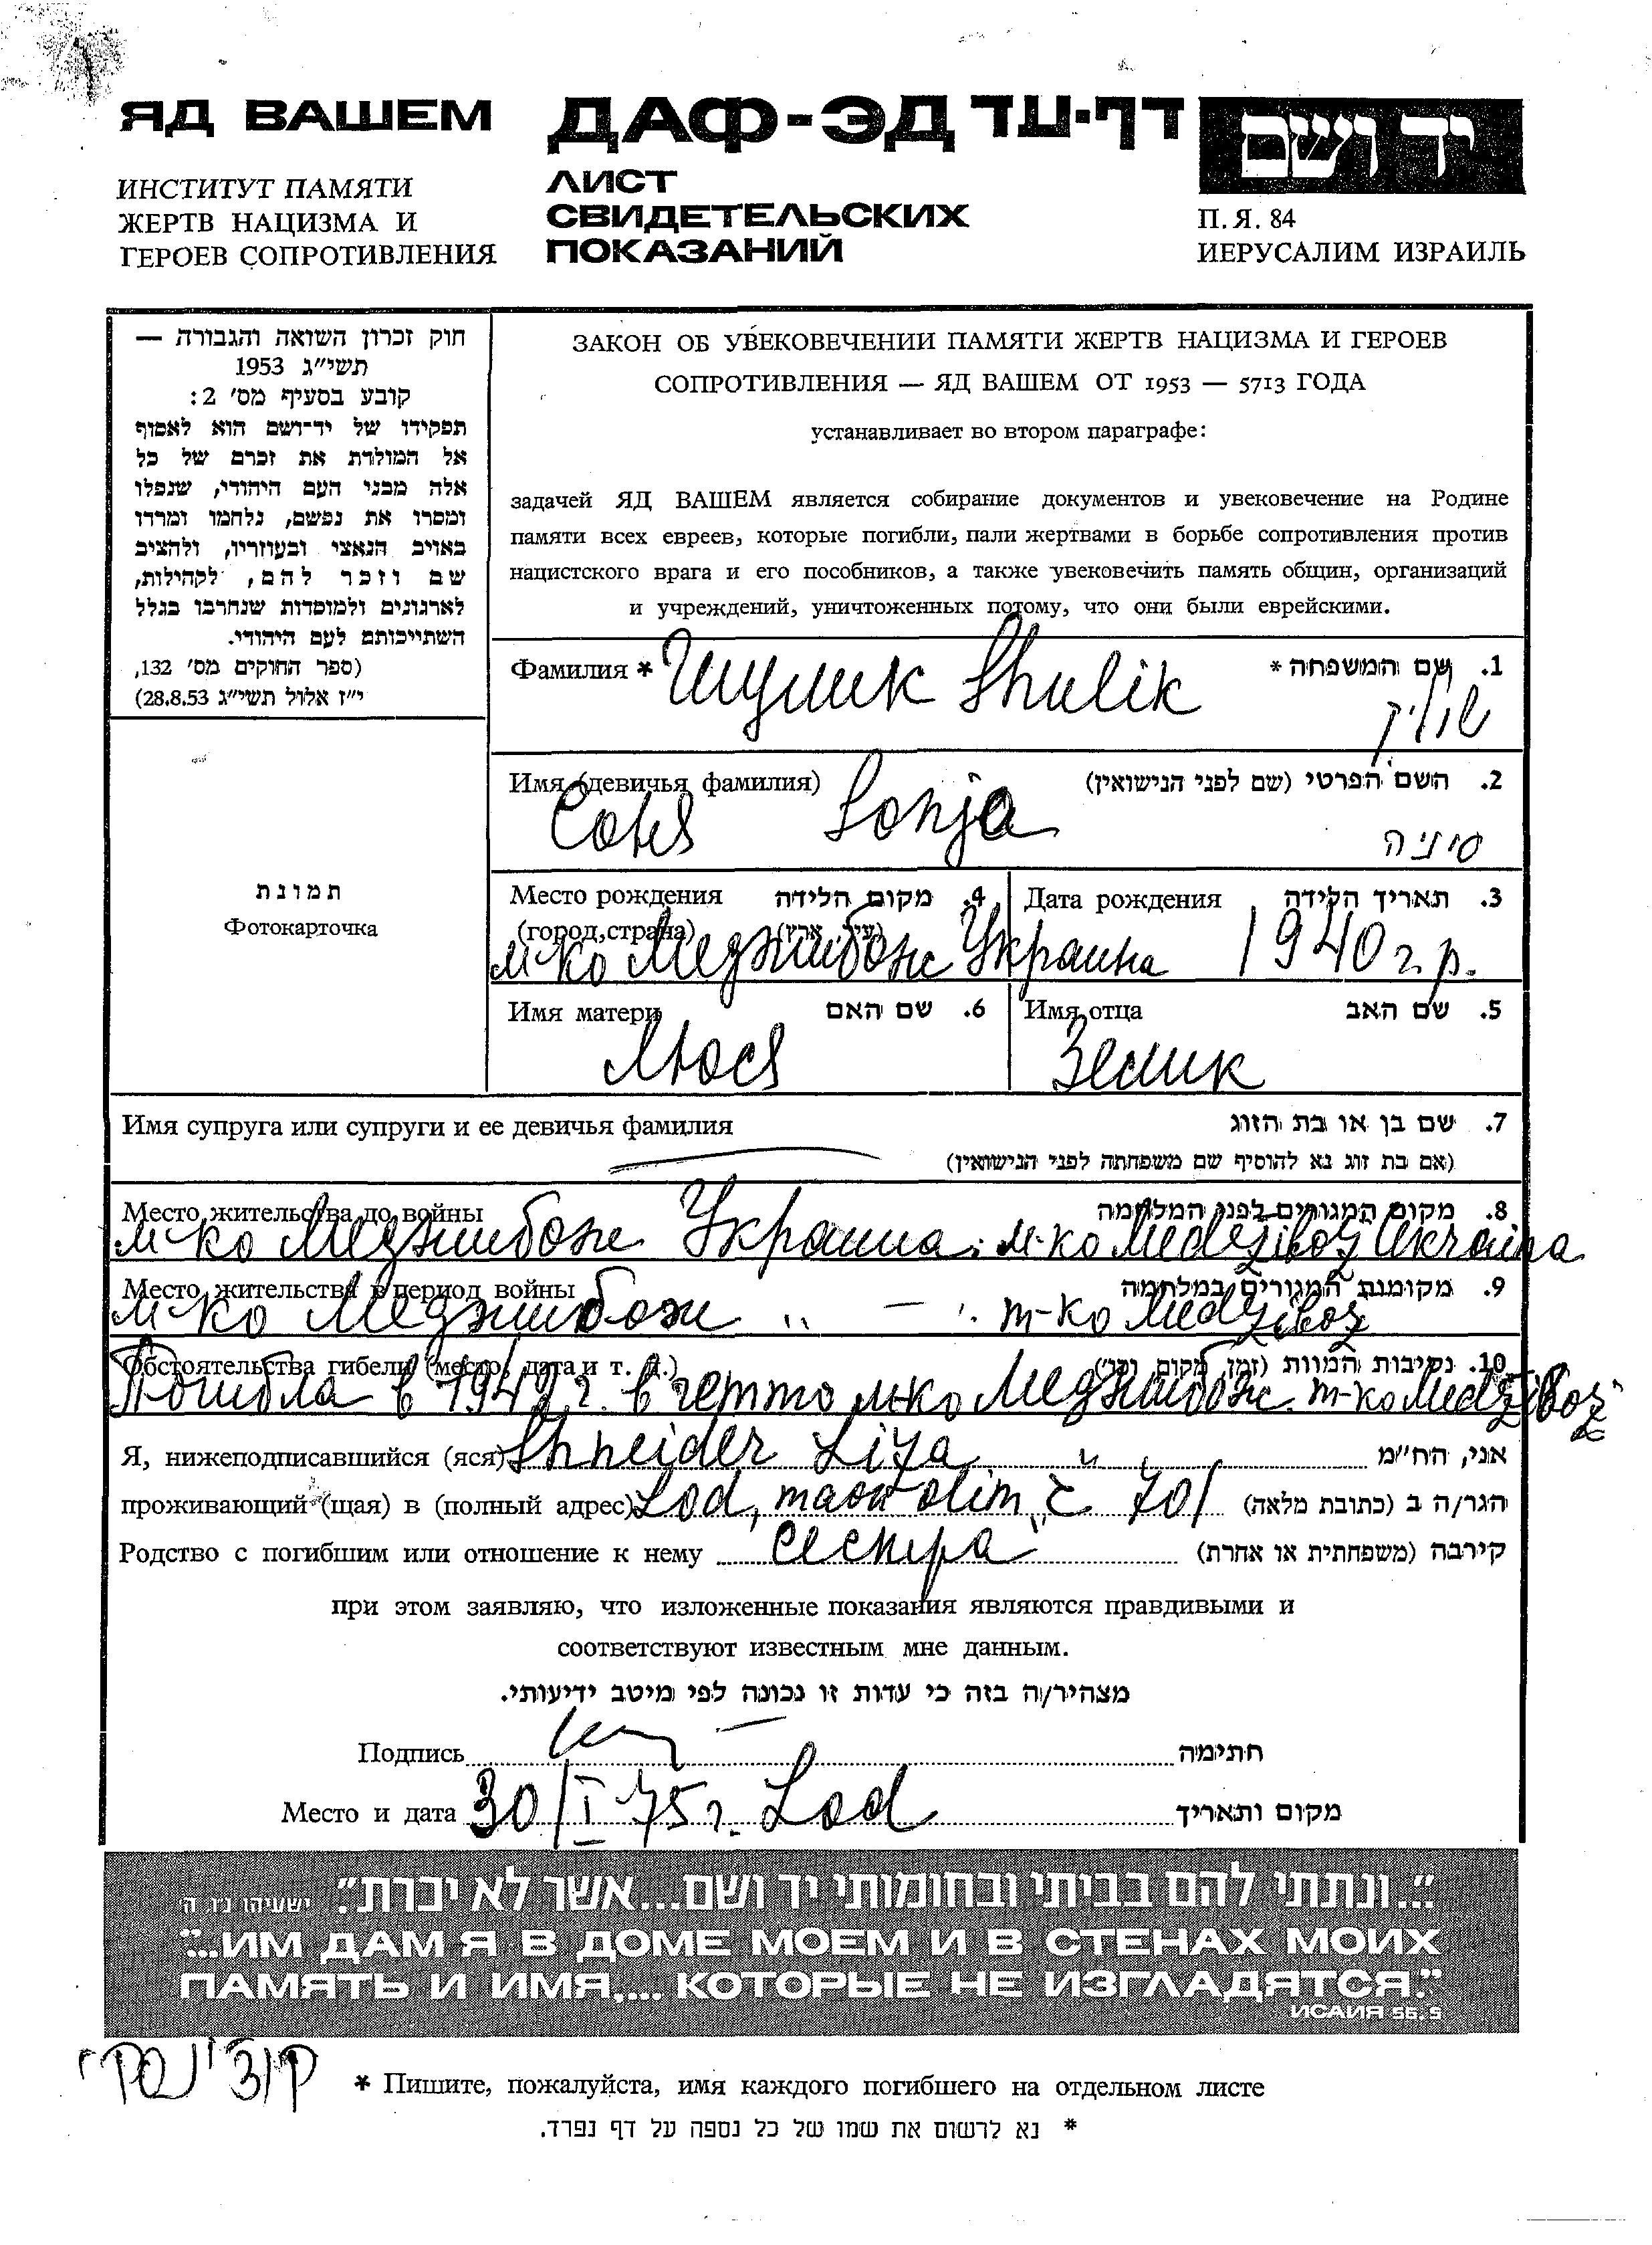 ЯД ВАШЕМ
ИНСТИТУТ ПАМЯТИ
ЖЕРТВ НАЦИЗМА И
ГЕРОЕВ СОПРОТИВЛЕНИЯ
ДАФ-ЭД דף-עד
ЛИСТ
СВИДЕТЕЛЬСКИХ
ПОКАЗАНИЙ
יד ושם
П.Я. 84
ИЕРУСАЛИМ ИЗРАИЛЬ
חוק זכרון השואה והגבורה —
תשי״ג 1953
קובע בסעיף מס׳ 2:
תפקידו של יד־ושם הוא לאסוף
אל המולדת את זכרם של כל
אלה מבני העם היהודי, שנפלו
ומסרו את נפשם, נלחמו ומרדו
באויב הנאצי ובעוזריו, ולהציב
שם וזכר להם, לקהילות,
לארגונים ולמוסדות שנחרבו בגלל
השתייכותם לעם היהודי.
(ספר החוקים מס׳ 132,
י״ז אלול תשי״ג 28.8.53)
תמונת
Фотокарточка
ЗАКОН ОБ УВЕКОВЕЧЕНИИ ПАМЯТИ ЖЕРТВ НАЦИЗМА И ГЕРОЕВ
СОПРОТИВЛЕНИЯ — ЯД ВАШЕМ ОТ 1953 — 5713 ГОДА
устанавливает во втором параграфе:
задачей ЯД ВАШЕМ является собирание документов и увековечение на Родине
памяти всех евреев, которые погибли, пали жертвами в борьбе сопротивления против
нацистского врага и его пособников, а также увековечить память общин, организаций
и учреждений, уничтоженных потому, что они были еврейскими.
Фамилия * Шулик Shulik 1. שם המשפחה *
שוליק
Имя (девичья фамилия) 2. השם הפרטי (שם לפני הנישואין)
Соня Sonja סוניה
Место рождения 4. מקום הלידה
(город, страна) (עיר, ארץ)
м-ко Меджибож Украина
Дата рождения 3. תאריך הלידה
1940 г.р.
Имя матери 6. שם האם
Люся
Имя отца 5. שם האב
Зелик
Имя супруга или супруги и ее девичья фамилия 7. שם בן או בת הזוג
(אם בת זוג נא להוסיף שם משפחתה לפני הנישואין)
Место жительства до войны 8. מקום המגורים לפני המלחמה
м-ко Меджибож Украина. м-ко Medziboz Ukraina
Место жительства в период войны 9. מקומות המגורים במלחמה
м-ко Меджибож " — . m-ко Medziboz
Обстоятельства гибели (место, дата и т. д.) 10. נסיבות המוות (זמן, מקום וכו׳)
Погибла в 1942 г. в гетто м-ко Меджибож. m-ко Medziboz
Я, нижеподписавшийся (яся) Shneider Liza אני, הח״מ
проживающий (щая) в (полный адрес) Lod, maon olim, 701 הגר/ה ב (כתובת מלאה)
Родство с погибшим или отношение к нему сестра קירבה (משפחתית או אחרת)
при этом заявляю, что изложенные показания являются правдивыми и
соответствуют известным мне данным.
מצהיר/ה בזה כי עדות זו נכונה לפי מיטב ידיעותי.
Подпись חתימה
Место и дата 30/I 75 г. Lod מקום ותאריך
"...ונתתי להם בביתי ובחומותי יד ושם...אשר לא יכרת". ישעיהו נ״ו, ה׳
"...ИМ ДАМ Я В ДОМЕ МОЕМ И В СТЕНАХ МОИХ
ПАМЯТЬ И ИМЯ,... КОТОРЫЕ НЕ ИЗГЛАДЯТСЯ."
ИСАИЯ 56.5
* Пишите, пожалуйста, имя каждого погибшего на отдельном листе
* נא לרשום את שמו של כל נספה על דף נפרד.